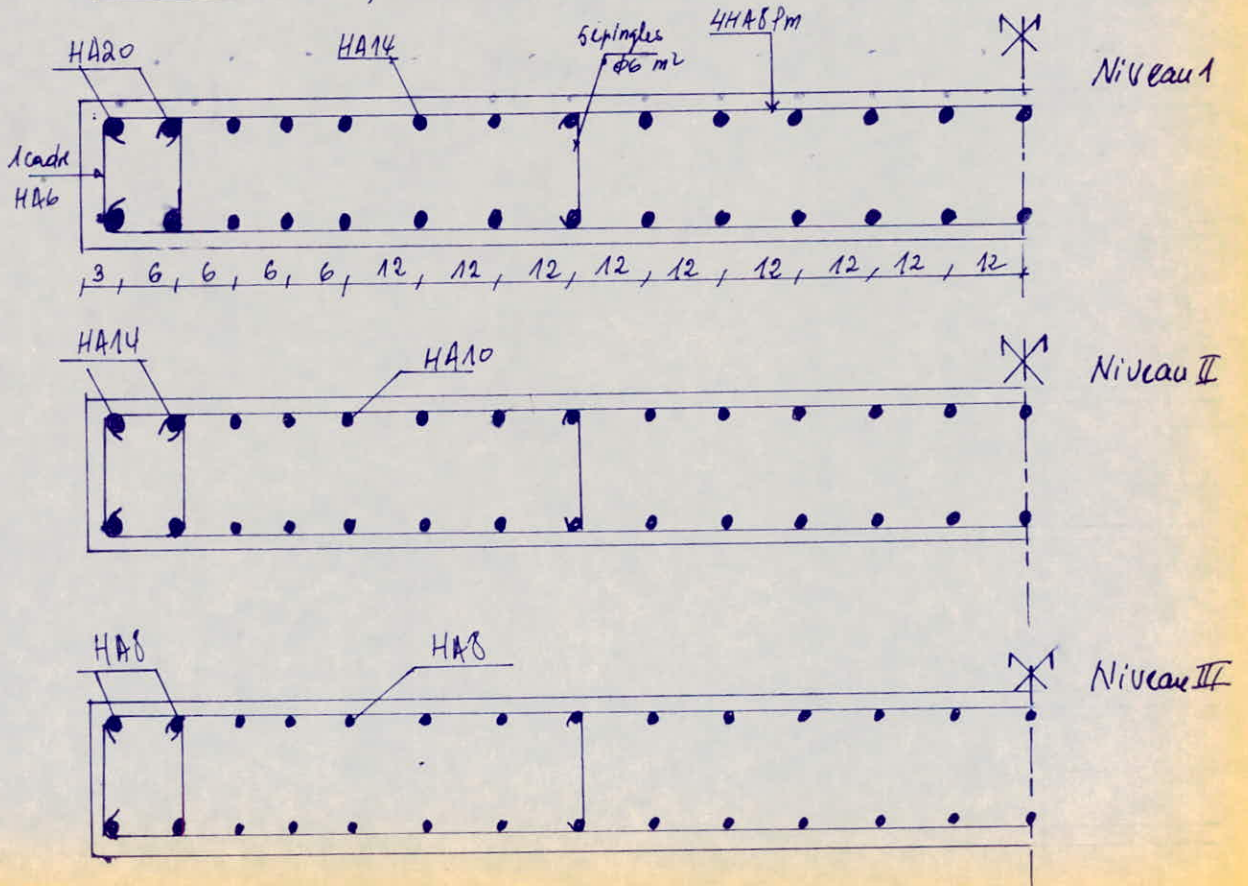 HA20
HA14
5épingles
Φ6 m²
4HA8 Pm
Niveau 1
1cadre
HA6
3 6 6 6 6 12 12 12 12 12 12 12 12 12
HA14
HA10
Niveau II
HA8
HA8
Niveau III